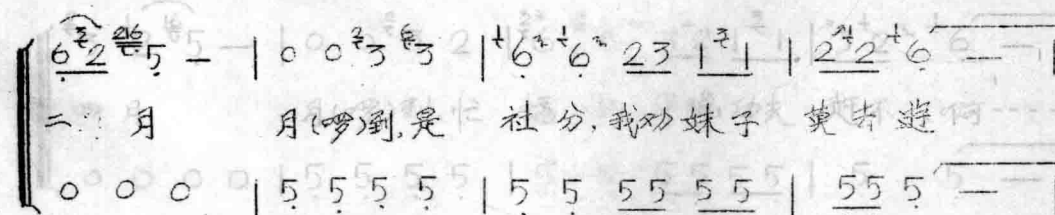 6 2 5 — | 0 0 3 3 | 6 6 23 1 1 | 2 2 6 —
二 月 月(啰)到,是 社 分,我劝 妹 子 莫 去 遊
0 0 0 | 5 5 5 5 | 5 5 55 55 | 55 5 —